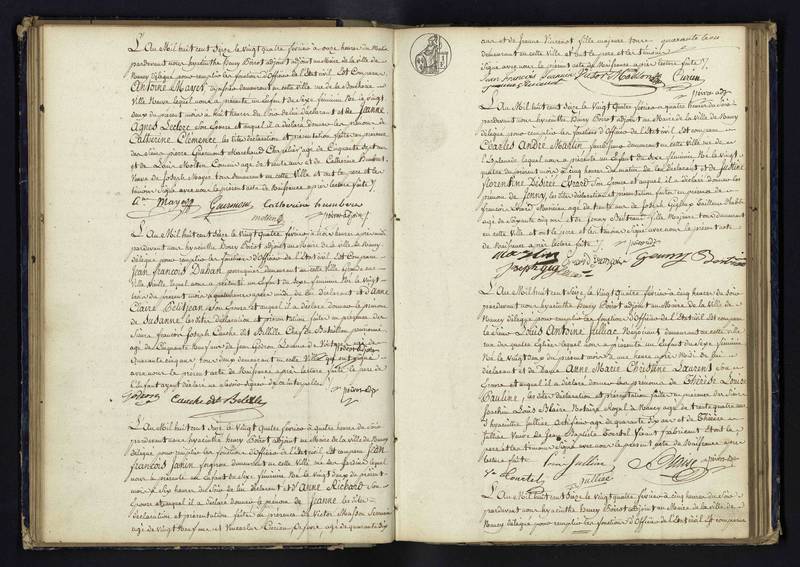 L'An Mil huit cent Seize le Vingt quatre fevrier à onze heures du Matin
pardevant nous hyacinthe Henry Poirot adjoint au Maire de la ville de
Nancy délégué pour remplir les fonctions d'Officier de l'Etat civil Est Comparu
Antoine Mayer demeurant en cette Ville rue de la
Ville Neuve lequel nous a présenté un Enfant du Sexe féminin Né le vingt
deux du présent mois à huit heures du Soir de lui déclarant et de Jeanne
Agnès Leclerc Son Epouse et auquel il a déclaré donner les prénoms de
Catherine Clémence, les dites déclaration et présentation faites en présence
des sieurs pierre Marchand agé de Cinquante Sept ans
et de Louis agé de trente ans et de Catherine Humbert
Veuve de Joseph Mayer tous demeurant en cette Ville et ont le pere et les
témoins Signé avec nous le présent acte de Naissance après lecture faite
Catherine humbert
L'An Mil huit cent Seize le Vingt Quatre fevrier à trois heures après midi
pardevant nous hyacinthe Henry Poirot adjoint au Maire de la ville de Nancy
délégué pour remplir les fonctions d'Officier de l'Etat civil Est Comparu
Jean François Duban demeurant en cette Ville Grande rue
Ville Vieille lequel nous a présenté un Enfant du Sexe féminin Né le Vingt
du présent mois à heures après midi de lui déclarant et d'Anne
Claire Petitjean Son Epouse et auquel il a déclaré donner le prénom
de Susanne les dites déclaration et présentation faites en présence des
Sieurs françois Joseph Cauche des Belilles Chef de Bataillon pensionné
agé de Cinquante Neuf ans de Jean agé de
Quarante cinq ans tous deux demeurant en cette Ville qui ont signé
avec nous le présent acte de Naissance après lecture faite, le pere de
l'Enfant ayant déclaré ne Savoir Signer de ce interpellé
Cauche des Belilles
L'An Mil huit cent Seize le Vingt Quatre fevrier à quatre heures du Soir
pardevant nous hyacinthe Henry Poirot adjoint au Maire de la ville de Nancy
délégué pour remplir les fonctions d'Officier de l'Etat civil Est comparu Jean
François Janin demeurant en cette Ville rue des lequel
nous a présenté un Enfant du Sexe féminin Né le Vingt deux du présent
mois à Six heures du Soir de lui déclarant et d'Anne Richard Son
Epouse et auquel il a déclaré donner le prénom de Jeanne les dites
déclaration et présentation faites en présence de Victor Masson
agé de Vingt Neuf ans, et agé de quarante Six
ans et de Jeanne Vincent fille majeure tous
demeurant en cette Ville et ont le pere et les témoins
Signé avec nous le présent acte de Naissance après lecture faite
L'An Mil huit cent Seize le Vingt Quatre fevrier à quatre heures du Soir
pardevant nous hyacinthe Henry Poirot adjoint au Maire de la Ville de Nancy
délégué pour remplir les fonctions d'Officier de l'Etat civil Est comparu
Charles André Martin demeurant en cette Ville rue de
l'Esplanade lequel nous a présenté un Enfant du Sexe féminin Né le Vingt
quatre du présent mois à cinq heures du matin de lui déclarant et de Justine
Florentine Désirée Evrard Son Epouse et auquel il a déclaré donner le
prénom de Jenny, les dites déclaration et présentation faites en présence de
françois agé de trente ans de Joseph
agé de Soixante dix ans et de Jenny Bertrand fille Majeure tous demeurant
en cette Ville et ont le pere et les témoins Signé avec nous le présent acte
de Naissance après lecture faite
Martin
L'An Mil huit cent Seize le Vingt Quatre fevrier à cinq heures du Soir
pardevant nous hyacinthe Henry Poirot adjoint au Maire de la Ville de
Nancy délégué pour remplir les fonctions d'Officier de l'Etat civil Est comparu
le Sieur Louis Antoine Julliac Négociant demeurant en cette ville
rue des quatre Eglises lequel nous a présenté un Enfant du Sexe féminin
Né le Vingt deux du présent mois à une heure après Midi de lui
déclarant et de Dame Anne Marie Christine Laurent Son
Epouse et auquel il a déclaré donner les prénoms de Thérèse Louise
Pauline, les dites déclaration et présentation faites en présence des Sieurs
Joachim Louis Notaire Royal à Nancy agé de trente quatre ans
hyacinthe Julliac agé de quarante Six ans et de Thérèse
Julliac Veuve de Jean Baptiste Courtel Vivant fabricant et ont le
pere et les témoins Signé avec nous le présent acte de Naissance après
lecture faite
Ve Courtel Julliac
L'An Mil huit cent Seize le Vingt Quatre fevrier à cinq heures du Soir
pardevant nous hyacinthe Henry Poirot adjoint au Maire de la ville de
Nancy délégué pour remplir les fonctions d'Officier de l'Etat civil Est comparu